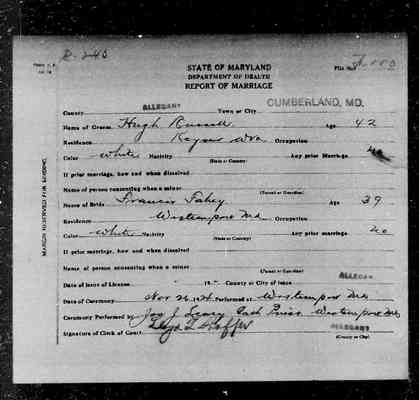 STATE OF MARYLAND
DEPARTMENT OF HEALTH
REPORT OF MARRIAGE
County ALLEGANY Town or City CUMBERLAND, MD.
Name of Groom Hugh Russell Age 42
Residence Keyser Wva Occupation
Color White Nativity (State or County) Any prior marriage no
If prior marriage, how and when dissolved
Name of person consenting when a minor (Parent or Guardian)
Name of Bride Frances Fahey Age 39
Residence Westernport Md. Occupation
Color White Nativity (State or County) Any prior marriage no
If prior marriage, how and when dissolved
Name of person consenting when a minor (Parent or Guardian)
Date of Issue of License 19 County or City of Issue ALLEGANY
Date of Ceremony Nov 26 Performed at Westernport Md.
Ceremony Performed by Jas J. Leary Cath Priest Westernport Md.
Signature of Clerk of Court ALLEGANY
(County or City)
MARGIN RESERVED FOR BINDING